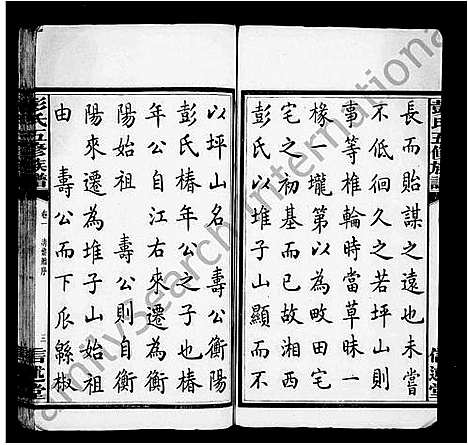 長而貽謀之遠也未嘗
不低徊久之若坪山則
事等椎輪時當草昧一
椽一壠第以為田宅田
宅之初基而已故湘西
彭氏以堆子山顯而不
以坪山名 壽公衡陽
彭氏椿年公之子也椿
年公自江右來遷為衡
陽始祖 壽公則自衡
陽來遷為堆子山始祖
由 壽公而下瓜緜椒
彭氏五修族譜
卷一
三
信述堂
彭氏五修族譜
信述堂
amilysearch international